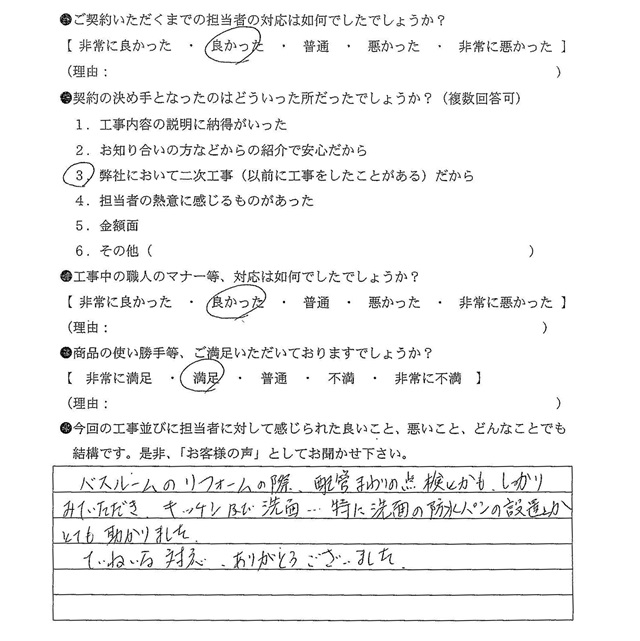 ●ご契約いただくまでの担当者の対応は如何でしたでしょうか？
【 非常に良かった ・ 良かった ・ 普通 ・ 悪かった ・ 非常に悪かった 】
（理由： ）
●契約の決め手となったのはどういった所だったでしょうか？（複数回答可）
１．工事内容の説明に納得がいった
２．お知り合いの方などからの紹介で安心だから
３．弊社において二次工事（以前に工事をしたことがある）だから
４．担当者の熱意に感じるものがあった
５．金額面
６．その他（ ）
●工事中の職人のマナー等、対応は如何でしたでしょうか？
【 非常に良かった ・ 良かった ・ 普通 ・ 悪かった ・ 非常に悪かった 】
（理由： ）
●商品の使い勝手等、ご満足いただいておりますでしょうか？
【 非常に満足 ・ 満足 ・ 普通 ・ 不満 ・ 非常に不満 】
（理由： ）
●今回の工事並びに担当者に対して感じられた良いこと、悪いこと、どんなことでも
結構です。是非、「お客様の声」としてお聞かせ下さい。
バスルームのリフォームの際、配管まわりの点検とかも、しっかり
みていただき、キッチン及び洗面…特に洗面の防水パンの設置とか
とても助かりました。
ていねいな対応、ありがとうございました。